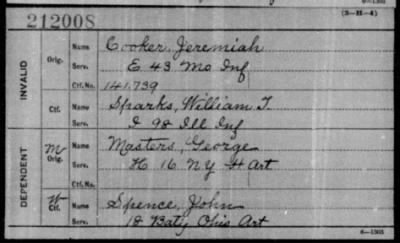 212008
(3—H—4)
INVALID
Orig. Name Cooker, Jeremiah
Serv. E 43 Mo Inf
Ctf. No. 141.739
Ctf. Name Sparks, William T.
Serv. I 98 Ill Inf
DEPENDENT
M Orig. Name Masters, George
Serv. H 16 NY H Art
Ctf. No.
W Ctf. Name Spence, John
Serv. 18 Baty Ohio Art
6—1303